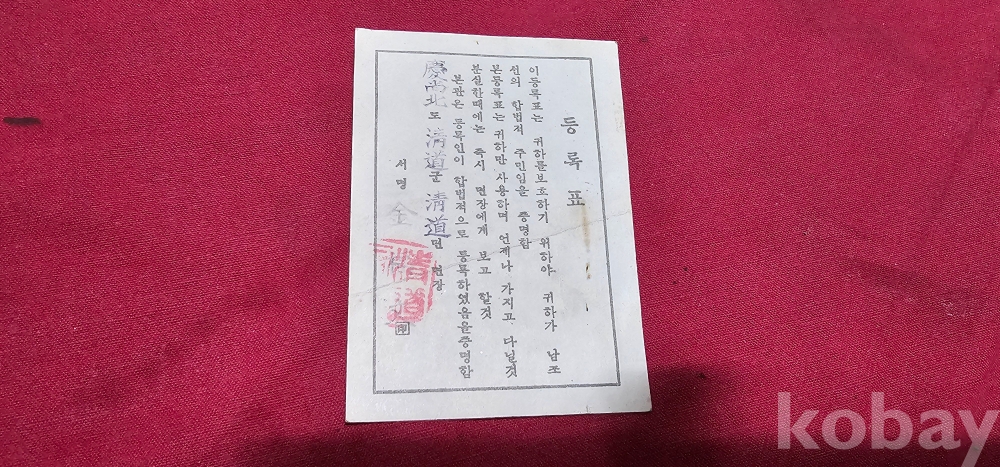 등록표
이등록표는 귀하를보호하기 위하야 귀하가 남조
선의 합법적 주민임을 증명함
본등록표는 귀하만 사용하며 언제나 가지고 다닐것
분실한때에는 즉시 면장에게 보고 할것
본관은 등록인이 합법적으로 등록하였음을증명함
慶尚北도 淸道군 淸道면 면장
서명 金 印
淸道
kobay